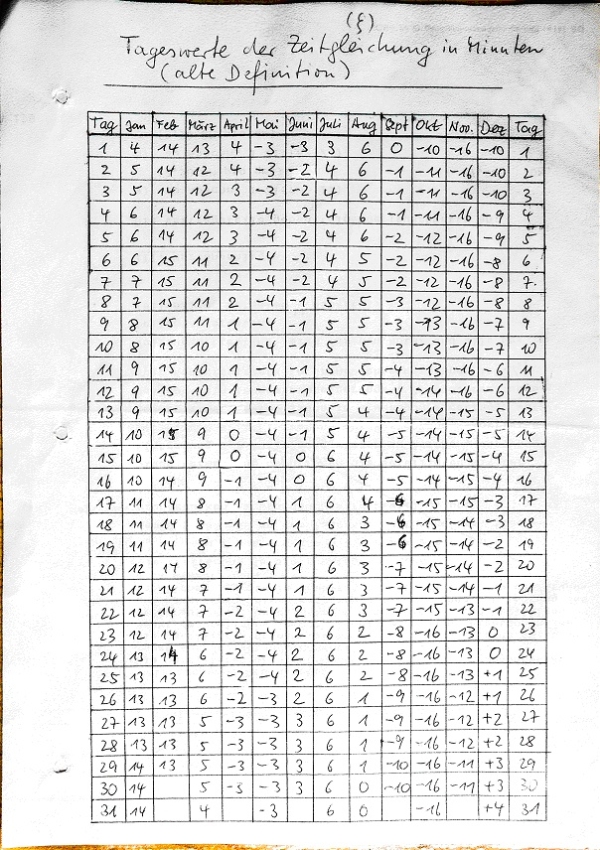 (ξ)
Tageswerte der Zeitgleichung in Minuten
(alte Definition)
Tag Jan Feb März April Mai Juni Juli Aug Sept Okt Nov. Dez Tag
1 4 14 13 4 -3 -3 3 6 0 -10 -16 -10 1
2 5 14 12 4 -3 -2 4 6 -1 -11 -16 -10 2
3 5 14 12 3 -3 -2 4 6 -1 -11 -16 -10 3
4 6 14 12 3 -4 -2 4 6 -1 -11 -16 -9 4
5 6 14 12 3 -4 -2 4 6 -2 -12 -16 -9 5
6 6 15 11 2 -4 -2 4 5 -2 -12 -16 -8 6
7 7 15 11 2 -4 -2 4 5 -2 -12 -16 -8 7.
8 7 15 11 2 -4 -1 5 5 -3 -12 -16 -8 8
9 8 15 11 1 -4 -1 5 5 -3 -13 -16 -7 9
10 8 15 10 1 -4 -1 5 5 -3 -13 -16 -7 10
11 9 15 10 1 -4 -1 5 5 -4 -13 -16 -6 11
12 9 15 10 1 -4 -1 5 5 -4 -14 -16 -6 12
13 9 15 10 1 -4 -1 5 4 -4 -14 -15 -5 13
14 10 15 9 0 -4 -1 5 4 -5 -14 -15 -5 14
15 10 15 9 0 -4 0 6 4 -5 -14 -15 -4 15
16 10 14 9 -1 -4 0 6 4 -5 -14 -15 -4 16
17 11 14 8 -1 -4 1 6 4 -6 -15 -15 -3 17
18 11 14 8 -1 -4 1 6 3 -6 -15 -14 -3 18
19 11 14 8 -1 -4 1 6 3 -6 -15 -14 -2 19
20 12 14 8 -1 -4 1 6 3 -7 -15 -14 -2 20
21 12 14 7 -1 -4 1 6 3 -7 -15 -14 -1 21
22 12 14 7 -2 -4 2 6 3 -7 -15 -13 -1 22
23 12 14 7 -2 -4 2 6 2 -8 -16 -13 0 23
24 13 14 6 -2 -4 2 6 2 -8 -16 -13 0 24
25 13 13 6 -2 -4 2 6 2 -8 -16 -13 +1 25
26 13 13 6 -2 -3 2 6 1 -9 -16 -12 +1 26
27 13 13 5 -3 -3 3 6 1 -9 -16 -12 +2 27
28 13 13 5 -3 -3 3 6 1 -9 -16 -12 +2 28
29 14 13 5 -3 -3 3 6 1 -10 -16 -11 +3 29
30 14 5 -3 -3 3 6 0 -10 -16 -11 +3 30
31 14 4 -3 6 0 -16 +4 31